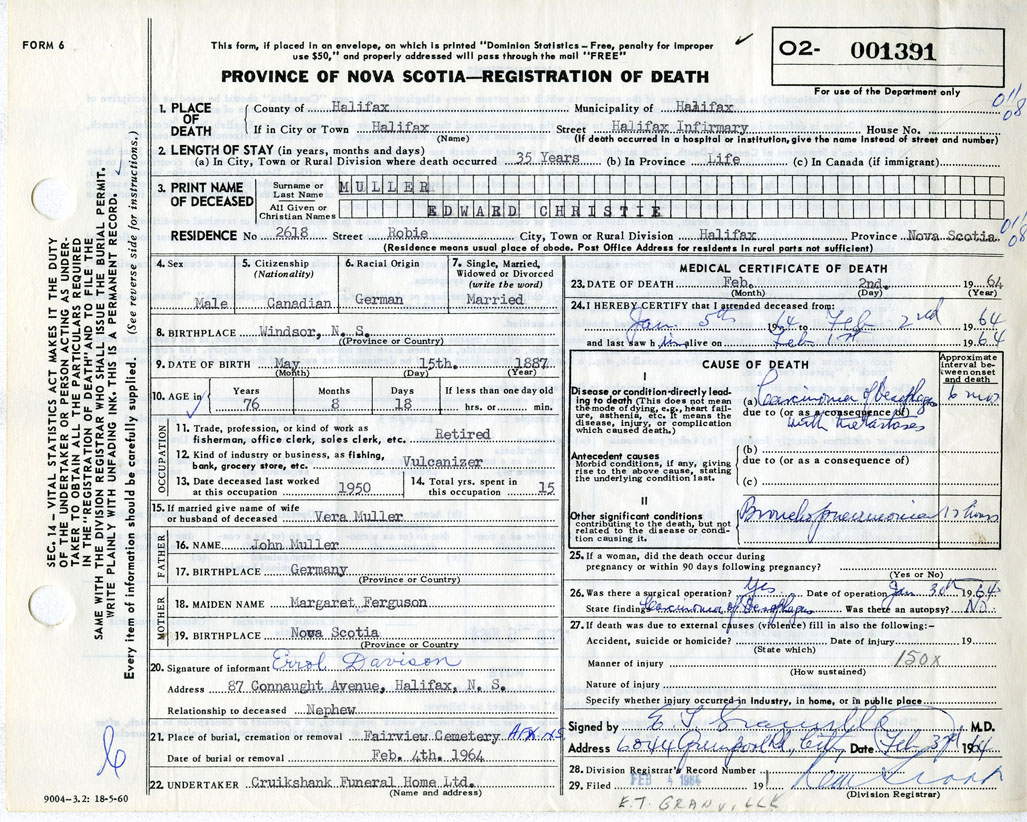 FORM 6
This form, if placed in an envelope, on which is printed "Dominion Statistics – Free, penalty for improper
use $50," and properly addressed will pass through the mail "FREE"
PROVINCE OF NOVA SCOTIA—REGISTRATION OF DEATH
O2- 001391
For use of the Department only
SEC. 14 – VITAL STATISTICS ACT MAKES IT THE DUTY
OF THE UNDERTAKER OR PERSON ACTING AS UNDER-
TAKER TO OBTAIN ALL THE PARTICULARS REQUIRED
IN THE "REGISTRATION OF DEATH" AND TO FILE THE
SAME WITH THE DIVISION REGISTRAR WHO SHALL ISSUE THE BURIAL PERMIT.
WRITE PLAINLY WITH UNFADING INK. THIS IS A PERMANENT RECORD.
Every item of information should be carefully supplied. (See reverse side for instructions.)
1. PLACE OF DEATH
County of Halifax Municipality of Halifax
If in City or Town Halifax Street Halifax Infirmary House No.
(Name) (If death occurred in hospital or institution, give the name instead of street and number)
011
08
2. LENGTH OF STAY (in years, months and days)
(a) In City, Town or Rural Division where death occurred 35 Years (b) In Province Life (c) In Canada (if immigrant)
3. PRINT NAME OF DECEASED
Surname or Last Name MULLER
All Given or Christian Names EDWARD CHRISTIE
RESIDENCE No 2618 Street Robie City, Town or Rural Division Halifax Province Nova Scotia
(Residence means usual place of abode. Post Office Address for residents in rural parts not sufficient)
011
08
4. Sex Male
5. Citizenship (Nationality) Canadian
6. Racial Origin German
7. Single, Married, Widowed or Divorced (write the word) Married
8. BIRTHPLACE Windsor, N. S.
(Province or Country)
9. DATE OF BIRTH May 15th. 1887
(Month) (Day) (Year)
10. AGE in Years 76 Months 8 Days 18 If less than one day old hrs. or min.
OCCUPATION
11. Trade, profession, or kind of work as fisherman, office clerk, sales clerk, etc. Retired
12. Kind of industry or business, as fishing, bank, grocery store, etc. Vulcanizer
13. Date deceased last worked at this occupation 1950
14. Total yrs. spent in this occupation 15
15. If married give name of wife or husband of deceased Vera Muller
FATHER
16. NAME John Muller
17. BIRTHPLACE Germany
(Province or Country)
MOTHER
18. MAIDEN NAME Margaret Ferguson
19. BIRTHPLACE Nova Scotia
(Province or Country
20. Signature of informant Errol Davison
Address 87 Connaught Avenue, Halifax, N. S.
Relationship to deceased Nephew
21. Place of burial, cremation or removal Fairview Cemetery
Date of burial or removal Feb. 4th. 1964
22. UNDERTAKER Cruikshank Funeral Home Ltd.
(Name and address)
9004-3.2: 18-5-60
MEDICAL CERTIFICATE OF DEATH
23. DATE OF DEATH Feb. 2nd. 19 64
(Month) (Day) (Year)
24. I HEREBY CERTIFY that I attended deceased from:
Jan. 5th 1964 to Feb 2nd 1964
and last saw him alive on Feb 1st 1964
CAUSE OF DEATH
Approximate interval between onset and death
I
Disease or condition-directly leading to death (This does not mean the mode of dying, e.g., heart failure, asthenia, etc. It means the disease, injury, or complication which caused death.)
(a) Carcinoma of Esophagus 6 mos
due to (or as a consequence of)
with metastases
Antecedent causes
Morbid conditions, if any, giving rise to the above cause, stating the underlying condition last.
(b)
due to (or as a consequence of)
(c)
II
Other significant conditions
contributing to the death, but not related to the disease or condition causing it.
Bronchopneumonia 12 hours
25. If a woman, did the death occur during pregnancy or within 90 days following pregnancy?
(Yes or No)
26. Was there a surgical operation? Yes Date of operation Jan 30th 1964
State findings Carcinoma of Esophagus Was there an autopsy? No.
27. If death was due to external causes (violence) fill in also the following:–
Accident, suicide or homicide? Date of injury 19
(State which)
Manner of injury 150x
(How sustained)
Nature of injury
Specify whether injury occurred in industry, in home, or in public place
Signed by E. T. Granville M.D.
Address 6044 City Date Feb 3rd 1964
28. Division Registrar's Record Number
29. Filed FEB 4 1964 19
(Division Registrar)
E.T. GRANVILLE